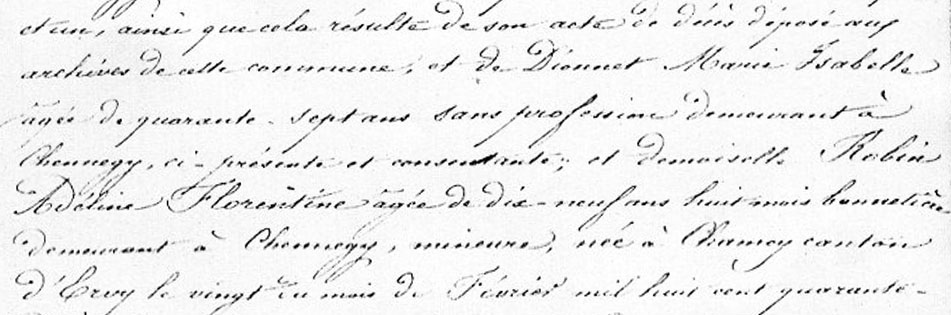 et un, ainsi que cela résulte de son acte de décès déposé aux
archives de cette commune, et de Dionnet Marie Isabelle
âgée de quarante-sept ans sans profession demeurant à
Chennegy, ci-présente et consentante; et demoiselle Robin
Adéline Florentine âgée de dix-neuf ans huit mois bonnetière
demeurant à Chennegy, mineure, née à Chamoy canton
d'Ervy le vingt du mois de Février mil huit cent quarante-